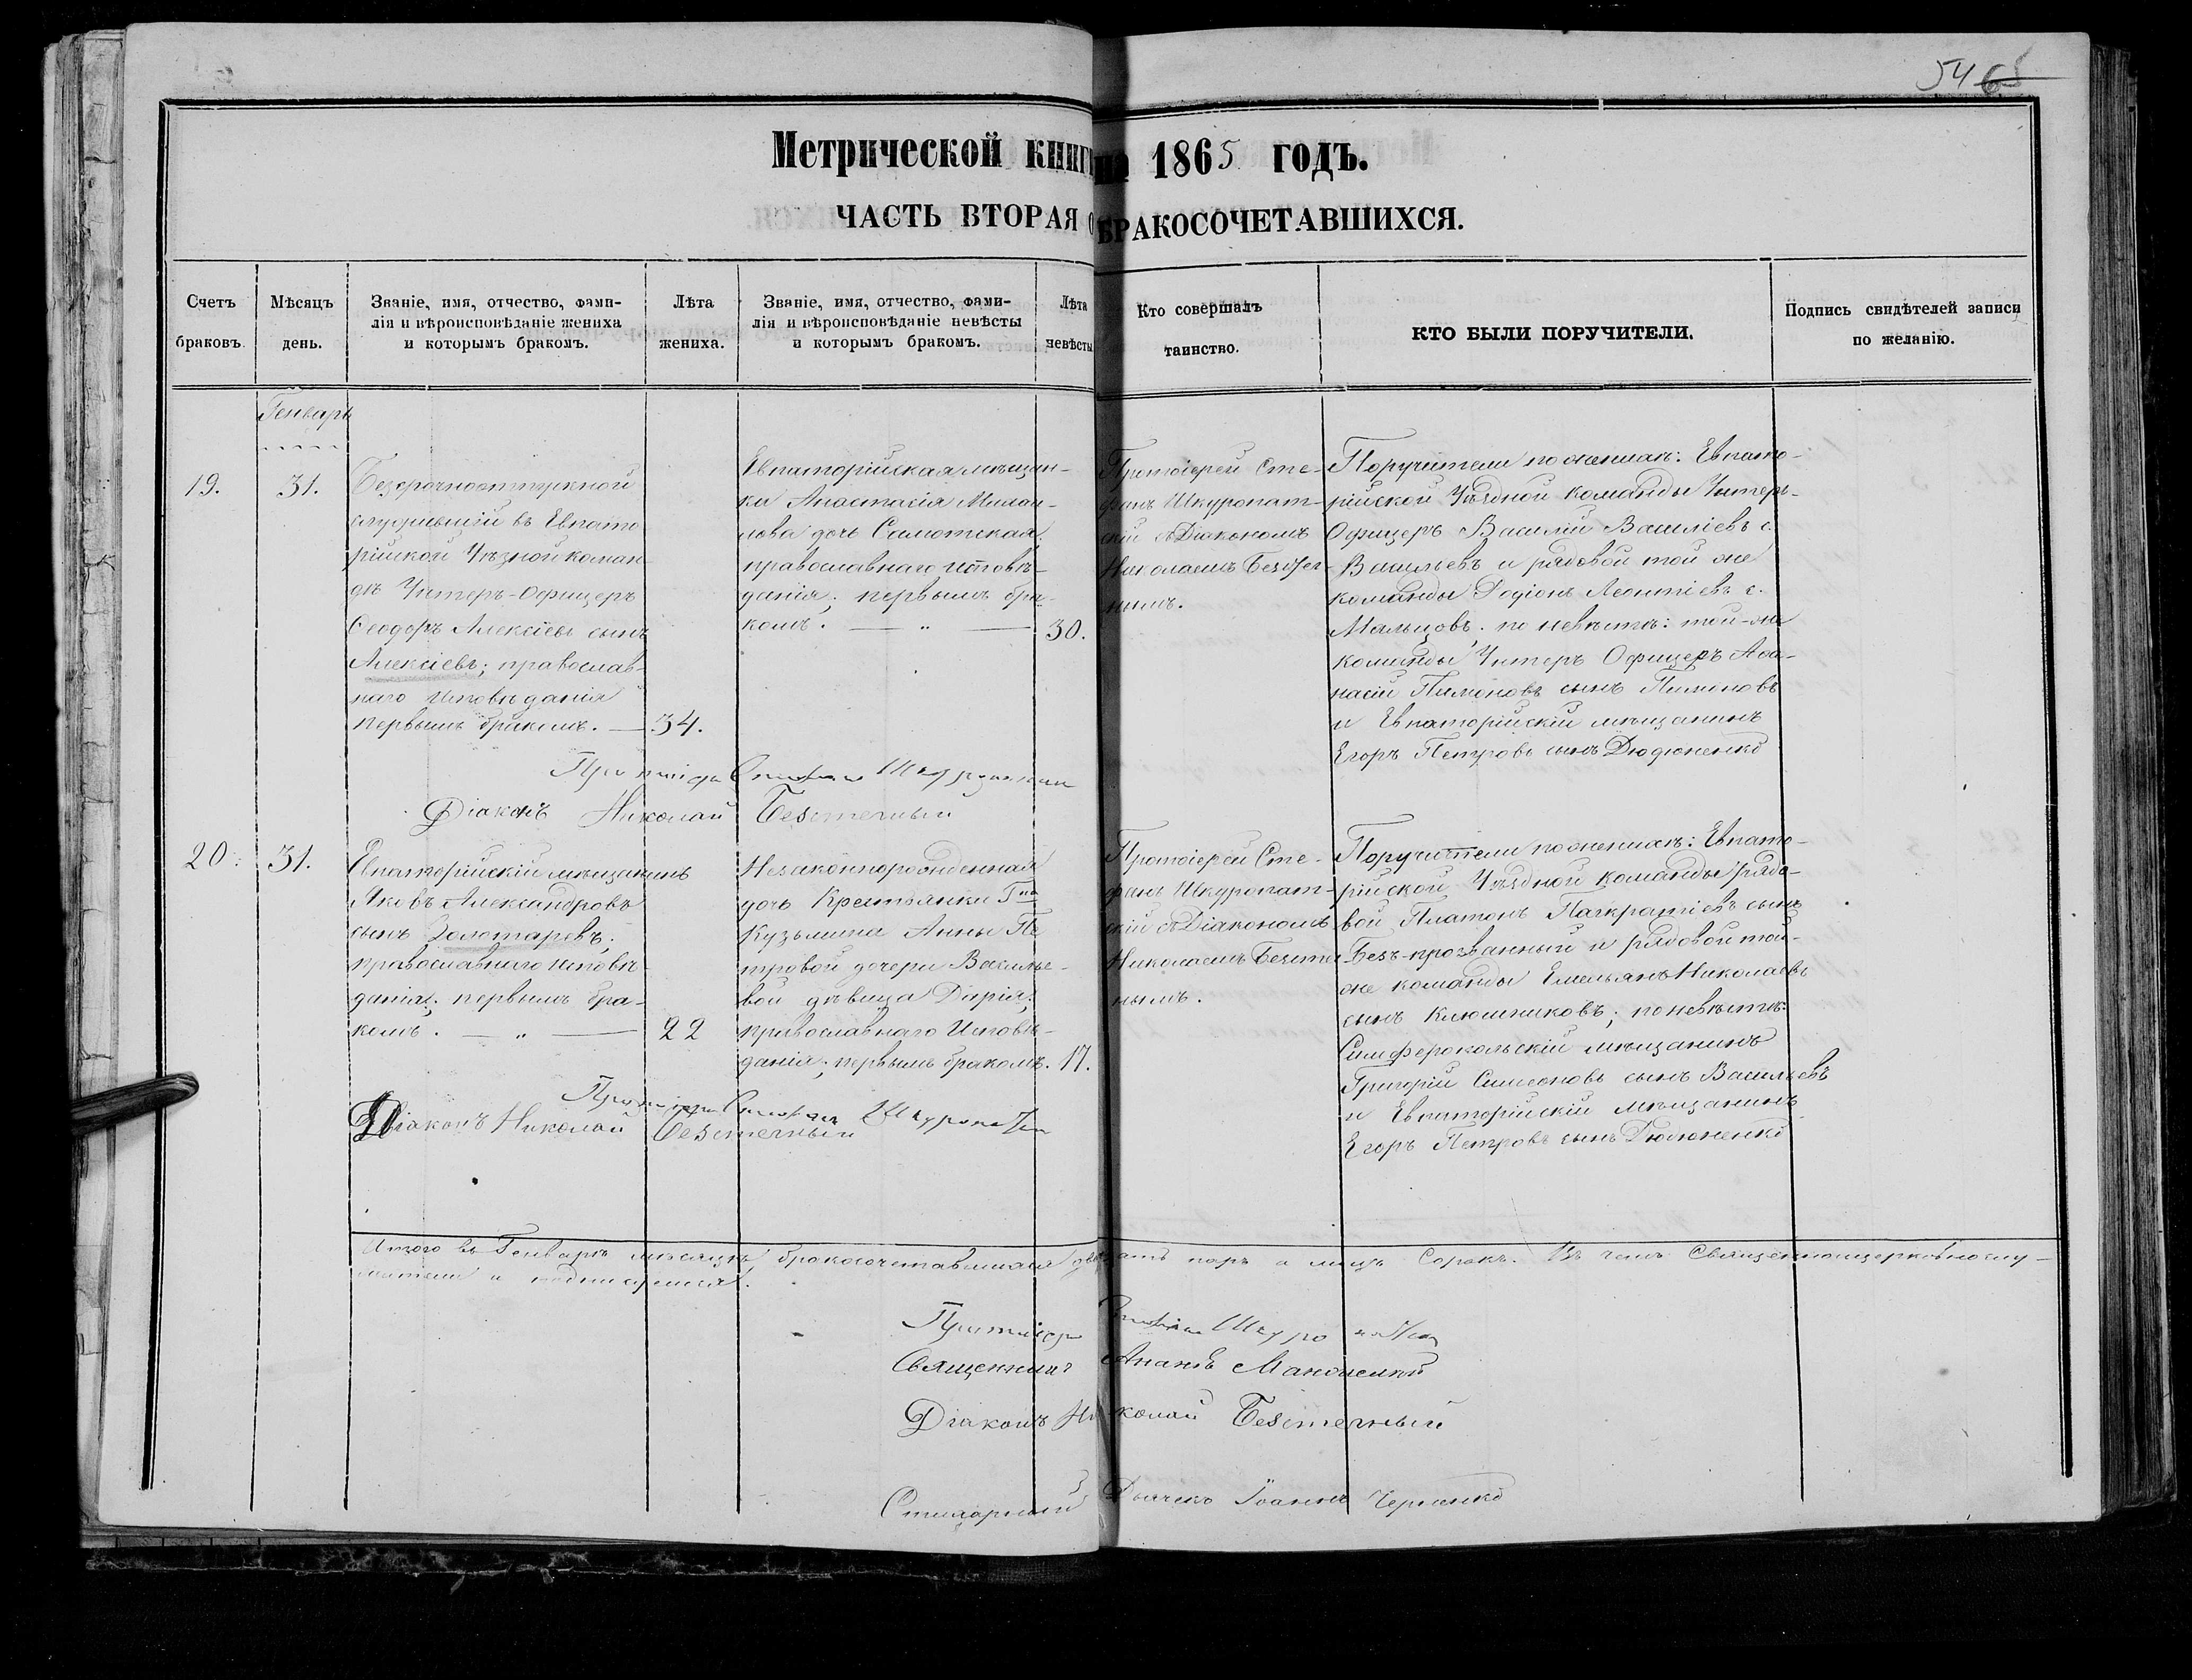 54 65
Метрической книги на 1865 годъ.
ЧАСТЬ ВТОРАЯ О БРАКОСОЧЕТАВШИХСЯ.
Счетъ
браковъ.
Мѣсяцъ
день.
Званіе, имя, отчество, фами-
лія и вѣроисповѣданіе жениха
и которымъ бракомъ.
Лѣта
жениха.
Званіе, имя, отчество, фами-
лія и вѣроисповѣданіе невѣсты
и которымъ бракомъ.
Лѣта
невѣсты
Кто совершалъ
таинство.
КТО БЫЛИ ПОРУЧИТЕЛИ.
Подпись свидѣтелей записи
по желанію.
Генварь
19.
31.
Безсрочноотпускной
служившій въ Евпато
рійской Уѣзной коман-
дѣ Унтеръ-Офицеръ
Ѳеодоръ Алексіевъ сынъ
Алексіевъ; православ-
наго Исповѣданія
первымъ бракомъ. —
34.
Евпаторійская мѣщан-
ка Анастасія Михаи-
лова дочь Самотская,
православнаго исповѣ-
данія; первымъ бра-
комъ. — „ —
30.
Протоіерей Сте-
фанъ Шкуропат-
скій съ Діакономъ
Николаемъ Безсмер-
нымъ.
Поручители по женихѣ: Евпато-
рійской Уѣздной команды Унтеръ-
Офицеръ Василій Василіевъ с.
Васильевъ и рядовой той же
команды Родіонъ Леонтіевъ с.
Мальцовъ. по невѣстѣ: той-же
команды Унтеръ Офицеръ Аѳа-
насій Пимоновъ сынъ Пимоновъ
и Евпаторійскій мѣщанинъ
Егоръ Петровъ сынъ Дюдюненко
Протоіерей Стефанъ Шкуропатскій
Діаконъ Николай Безсмерный
20.
31.
Евпаторійскій мѣщанинъ
Яковъ Александровъ
сынъ Золотаревъ;
православнаго исповѣ-
данія; первымъ бра-
комъ. — „ —
22
Незаконнорожденная
дочь Крестьянки Гна
Кузьмина Анны Пе
тровой дочери Василье-
вой дѣвица Дарія;
православнаго Исповѣ-
данія; первымъ бракомъ.
17.
Протоіерей Сте-
фанъ Шкуропат-
скій съ Діакономъ
Николаемъ Безсмер
нымъ.
Поручители по женихѣ: Евпато-
рійской Уѣздной команды рядо-
вой Платонъ Панкратіевъ сынъ
Безъ-прозванный и рядовой той-
же команды Емельянъ Николаевъ
сынъ Клюшниковъ; по невѣстѣ:
Симферопольскій мѣщанинъ
Григорій Симеоновъ сынъ Васильевъ
и Евпаторійскій мѣщанинъ
Егоръ Петровъ сынъ Дюдюненко
Протоіерей Стефанъ Шкуропатскій
Діаконъ Николай Безсмерный
Итого въ Генварѣ мѣсяцѣ бракосочетавшихся двадцать паръ а лицъ Сорокъ. Въ чемъ Священноцерковнослу-
жители и подписуемся.
Протоіерей Стефанъ Шкуропатскій
Священникъ
Діаконъ Николай Безсмерный
Стихарный Дьячекъ Іоаннъ